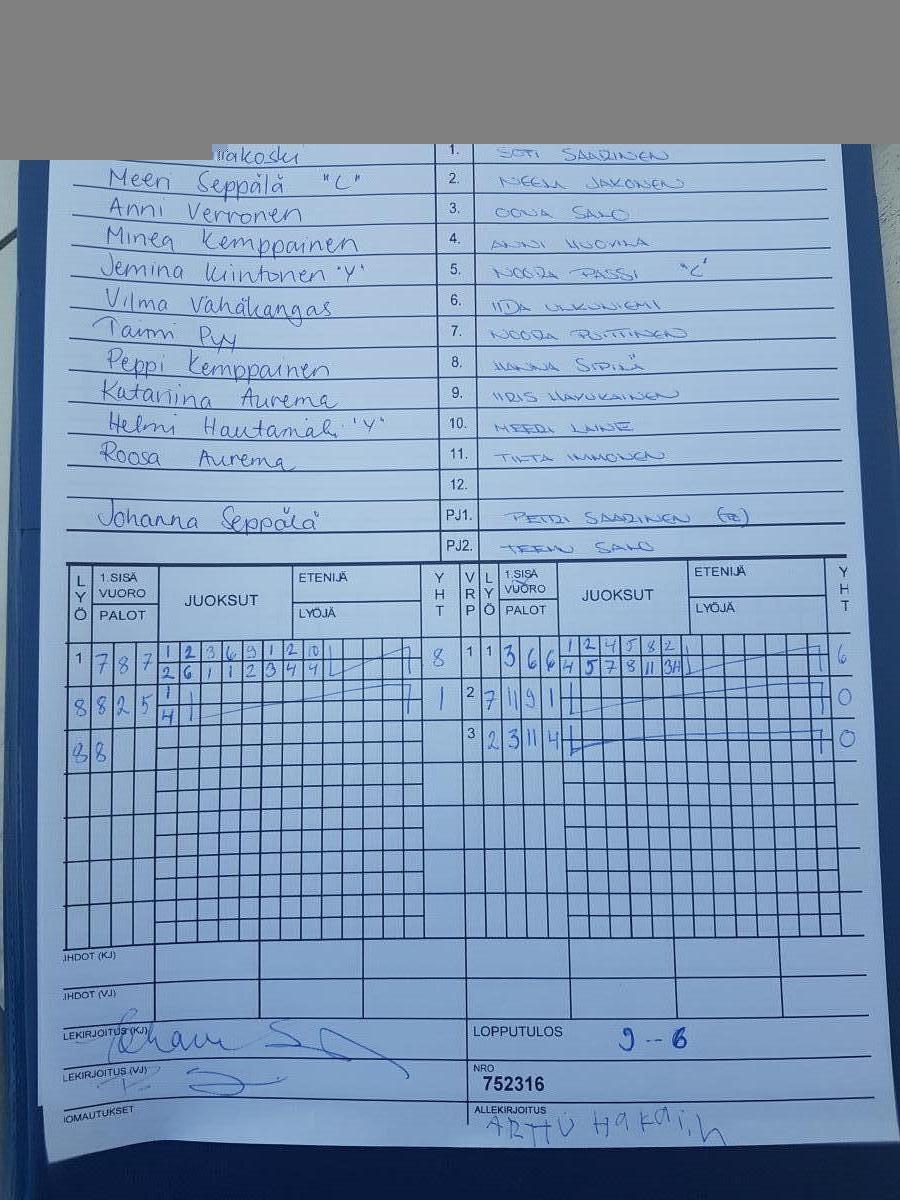 1. SOTI SAARINEN
Meeri Seppälä "C" 2. NEEA JAKONEN
Anni Verronen 3. OONA SALO
Minea Kemppainen 4. ANNI HUOVILA
Jemina Kiintonen "Y" 5. NOORA PASSI "C"
Vilma Vähäkangas 6. IIDA ULKUNIEMI
Taimi Pyy 7. NOORA PUITTINEN
Peppi Kemppainen 8. HANNA SIPILÄ
Katariina Aurema 9. IIRIS HAVUKAINEN
Helmi Hautamäki "Y" 10. MEERI LAINE
Roosa Aurema 11. IMMONEN
12.
Johanna Seppälä PJ1. PETRI SAARINEN
PJ2. SALO
LYÖ 1.SISÄ VUORO PALOT JUOKSUT ETENIJÄ LYÖJÄ YHT VRP LYÖ 1.SISÄ VUORO PALOT JUOKSUT ETENIJÄ LYÖJÄ YHT
1 7 8 7 1 2 3 6 9 1 2 10 8 1 1 3 6 6 1 2 4 5 8 2 6
2 6 1 1 2 3 4 4 4 5 7 8 11 3H
8 8 2 5 1 1 2 7 11 9 1 0
4
8 8 3 2 3 11 4 0
IHDOT (KJ)
IHDOT (VJ)
LEKIRJOITUS (KJ) LOPPUTULOS 9-6
LEKIRJOITUS (VJ) NRO
752316
IOMAUTUKSET ALLEKIRJOITUS
ARTTU